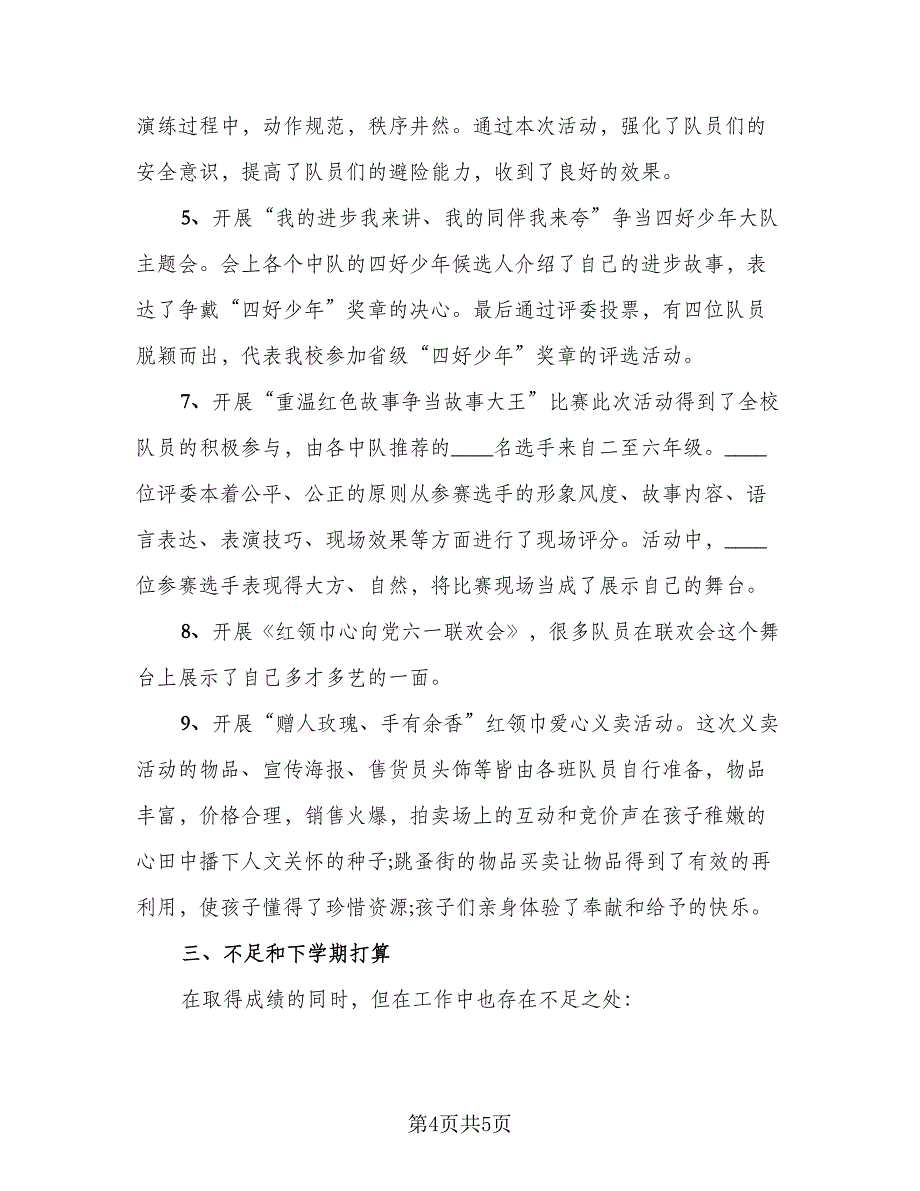 演练过程中，动作规范，秩序井然。通过本次活动，强化了队员们的
安全意识，提高了队员们的避险能力，收到了良好的效果。
5、开展“我的进步我来讲、我的同伴我来夸”争当四好少年大队
主题会。会上各个中队的四好少年候选人介绍了自己的进步故事，表
达了争戴“四好少年”奖章的决心。最后通过评委投票，有四位队员
脱颖而出，代表我校参加省级“四好少年”奖章的评选活动。
7、开展“重温红色故事争当故事大王”比赛此次活动得到了全校
队员的积极参与，由各中队推荐的____名选手来自二至六年级。____
位评委本着公平、公正的原则从参赛选手的形象风度、故事内容、语
言表达、表演技巧、现场效果等方面进行了现场评分。活动中，____
位参赛选手表现得大方、自然，将比赛现场当成了展示自己的舞台。
8、开展《红领巾心向党六一联欢会》，很多队员在联欢会这个舞
台上展示了自己多才多艺的一面。
9、开展“赠人玫瑰、手有余香”红领巾爱心义卖活动。这次义卖
活动的物品、宣传海报、售货员头饰等皆由各班队员自行准备，物品
丰富，价格合理，销售火爆，拍卖场上的互动和竞价声在孩子稚嫩的
心田中播下人文关怀的种子;跳蚤街的物品买卖让物品得到了有效的再
利用，使孩子懂得了珍惜资源;孩子们亲身体验了奉献和给予的快乐。
三、不足和下学期打算
在取得成绩的同时，但在工作中也存在不足之处：
第4页共5页